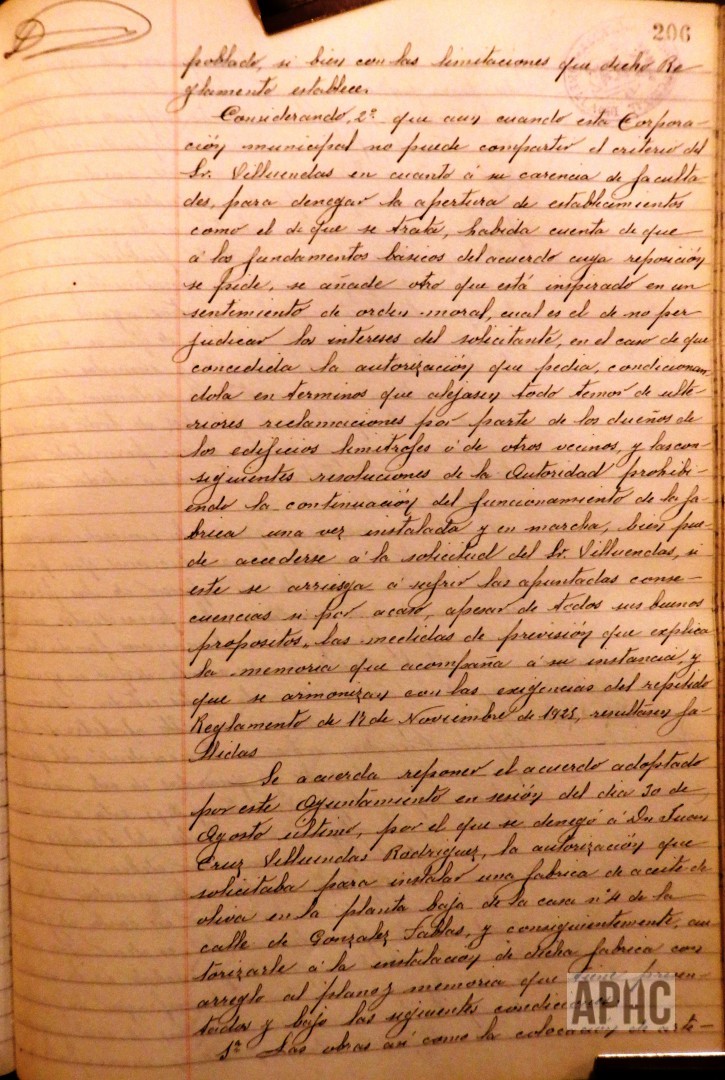 206
poblado, si bien con las limitaciones que dicho Re
glamento establece.
Considerando, 2º que aun cuando esta Corpora-
ción municipal no puede compartir el criterio del
Sr. Villuendas en cuanto á su carencia de faculta-
des, para denegar la apertura de establecimientos
como el de que se trata, habida cuenta de que
á los fundamentos básicos del acuerdo cuya reposición
se pide, se añade otro que está inspirado en un
sentimiento de orden moral, cual es el de no per
judicar los intereses del solicitante, en el caso de que
concedida la autorización que pedia, condicionan
dola en terminos que alejasen todo temor de ulte-
riores reclamaciones por parte de los dueños de
los edificios limitrofes ó de otros vecinos, y las con-
siguientes resoluciones de la Autoridad prohibi-
endo la continuación del funcionamiento de la fá-
brica una vez instalada y en marcha, bien pue-
de accederse á la solicitud del Sr. Villuendas, si
este se arriesga á sufrir las apuntadas conse-
cuencias si por acaso, apesar de todos sus buenos
propositos, las medidas de previsión que explica
la memoria que acompaña á su instancia, y
que se armonizan con las exigencias del repetido
Reglamento de 17 de Noviembre de 1925, resultasen fa-
llidas
Se acuerda reponer el acuerdo adoptado
por este Ayuntamiento en sesión del dia 30 de
Agosto último, por el que se denegó á Dn Juan
Cruz Villuendas Rodriguez, la autorización que
solicitaba para instalar una fabrica de aceite de
oliva en la planta baja de la casa nº 4 de la
calle de Gonzalez Tablas, y consiguientemente, au
torizarle á la instalación de dicha fabrica con
arreglo al plano y memoria que presen-
tados y bajo las siguientes condiciones
1ª Las obras así como la colocación de arte-
APHC